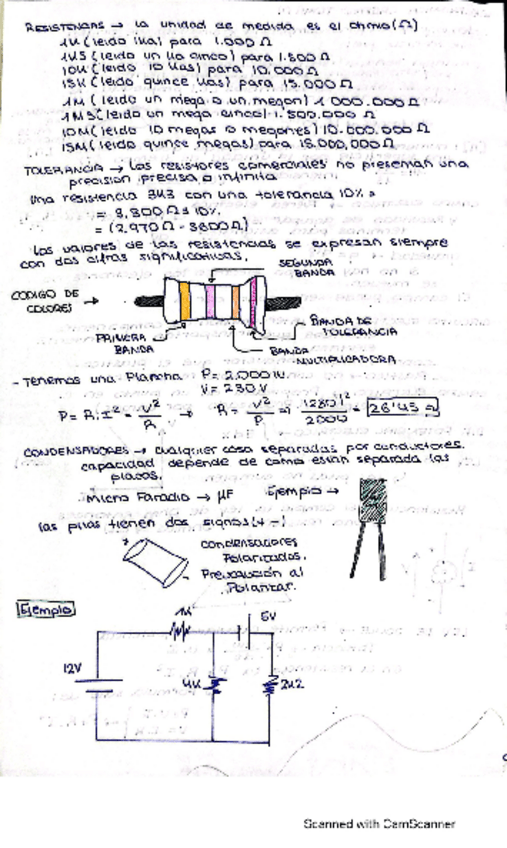 RESISTENCIAS → la unidad de medida es el ohmio (Ω)
1K (leido 1ka) para 1.000 Ω
1K5 (leido un ka cinco) para 1.500 Ω
10K (leido 10 kas) para 10.000 Ω
15K (leido quince kas) para 15.000 Ω
1M (leido un mega o un megon) 1 000.000 Ω
1M5 (leido un mega cinco) 1.500.000 Ω
10M (leido 10 megas o megones) 10.000.000 Ω
15M (leido quince megas) para 15.000.000 Ω
TOLERANCIA → los resistores comerciales no presentan una
precision precisa o infinita
Una resistencia 3K3 con una tolerancia 10% =
= 3.300 Ω ± 10%
= (2.970 Ω - 3600 Ω)
Los valores de las resistencias se expresan siempre
con dos cifras significativas.
SEGUNDA
BANDA
CODIGO DE →
COLORES
PRIMERA
BANDA
BANDA DE
TOLERANCIA
BANDA
MULTIPLICADORA
- Tenemos una Plancha P= 2.000 W
V= 230 V
P = R · I² = V²/R → R = V²/P = (230)²/2000 = 26'45 Ω
CONDENSADORES → cualquier cosa separadas por conductores.
capacidad depende de como están separada las
placas.
Micro Faradio → µF Ejemplo →
las pilas tienen dos signos (+ -)
+ -
condensadores
Polarizados.
Precaución al
Polarizar.
Ejemplo
1K
5V
12V
4K
2K2
Scanned with CamScanner